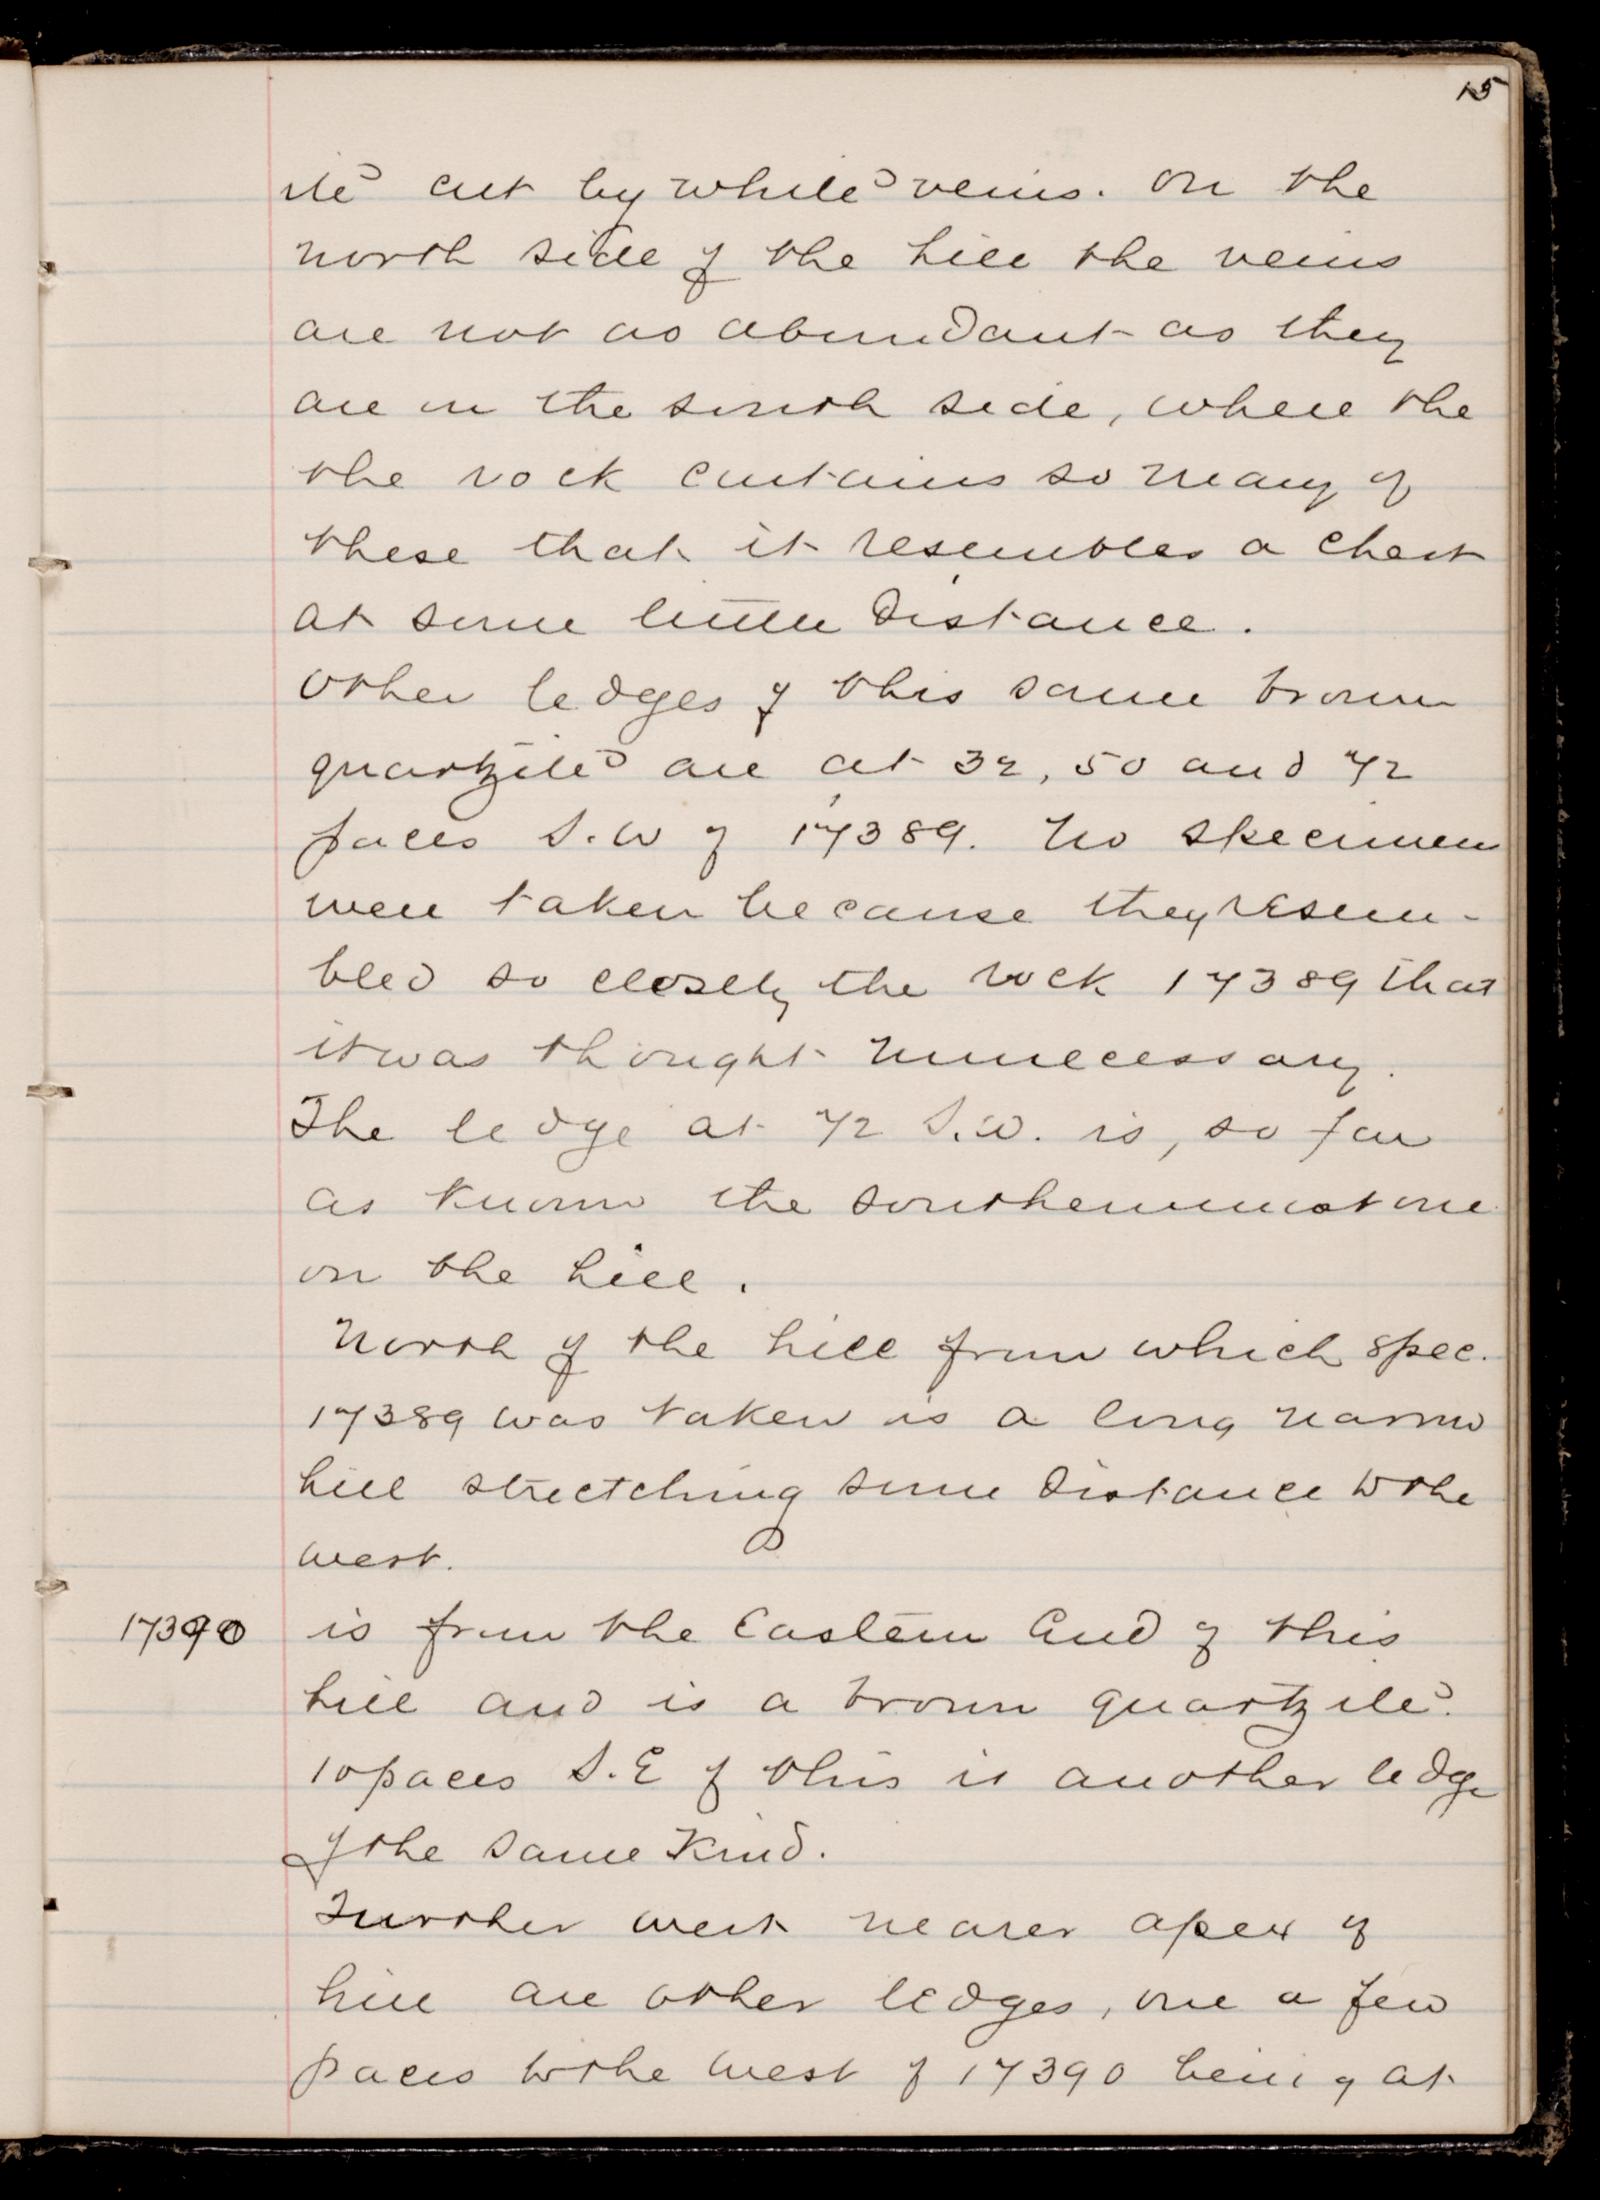 15
ite cut by white veins. On the
north side of the hill the veins
are not as abundant as they
are in the south side, where the
the rock contains so many of
these that it resembles a chert
at some little distance.
Other ledges of this same brown
quartzite are at 32, 50 and 72
paces S.W of 17389. No specimens
were taken because they resem-
bled so closely the rock 17389 that
it was thought unnecessary.
The ledge at 72 S.W. is, so far
as known the southernmost one
on the hill.
North of the hill from which spec.
17389 was taken is a long narrow
hill stretching some distance to the
west.
17390 is from the Eastern End of this
hill and is a brown quartzite.
10 paces S.E of this is another ledge
of the same Kind.
Further west nearer apex of
hill are other ledges, one a few
paces to the west of 17390 being at